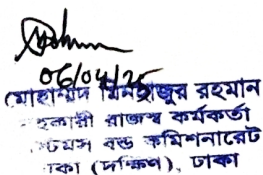 06/04/25
মোহাম্মদ মিনহাজুর রহমান
সহকারী রাজস্ব কর্মকর্তা
কাস্টমস বন্ড কমিশনারেট
ঢাকা (দক্ষিণ), ঢাকা